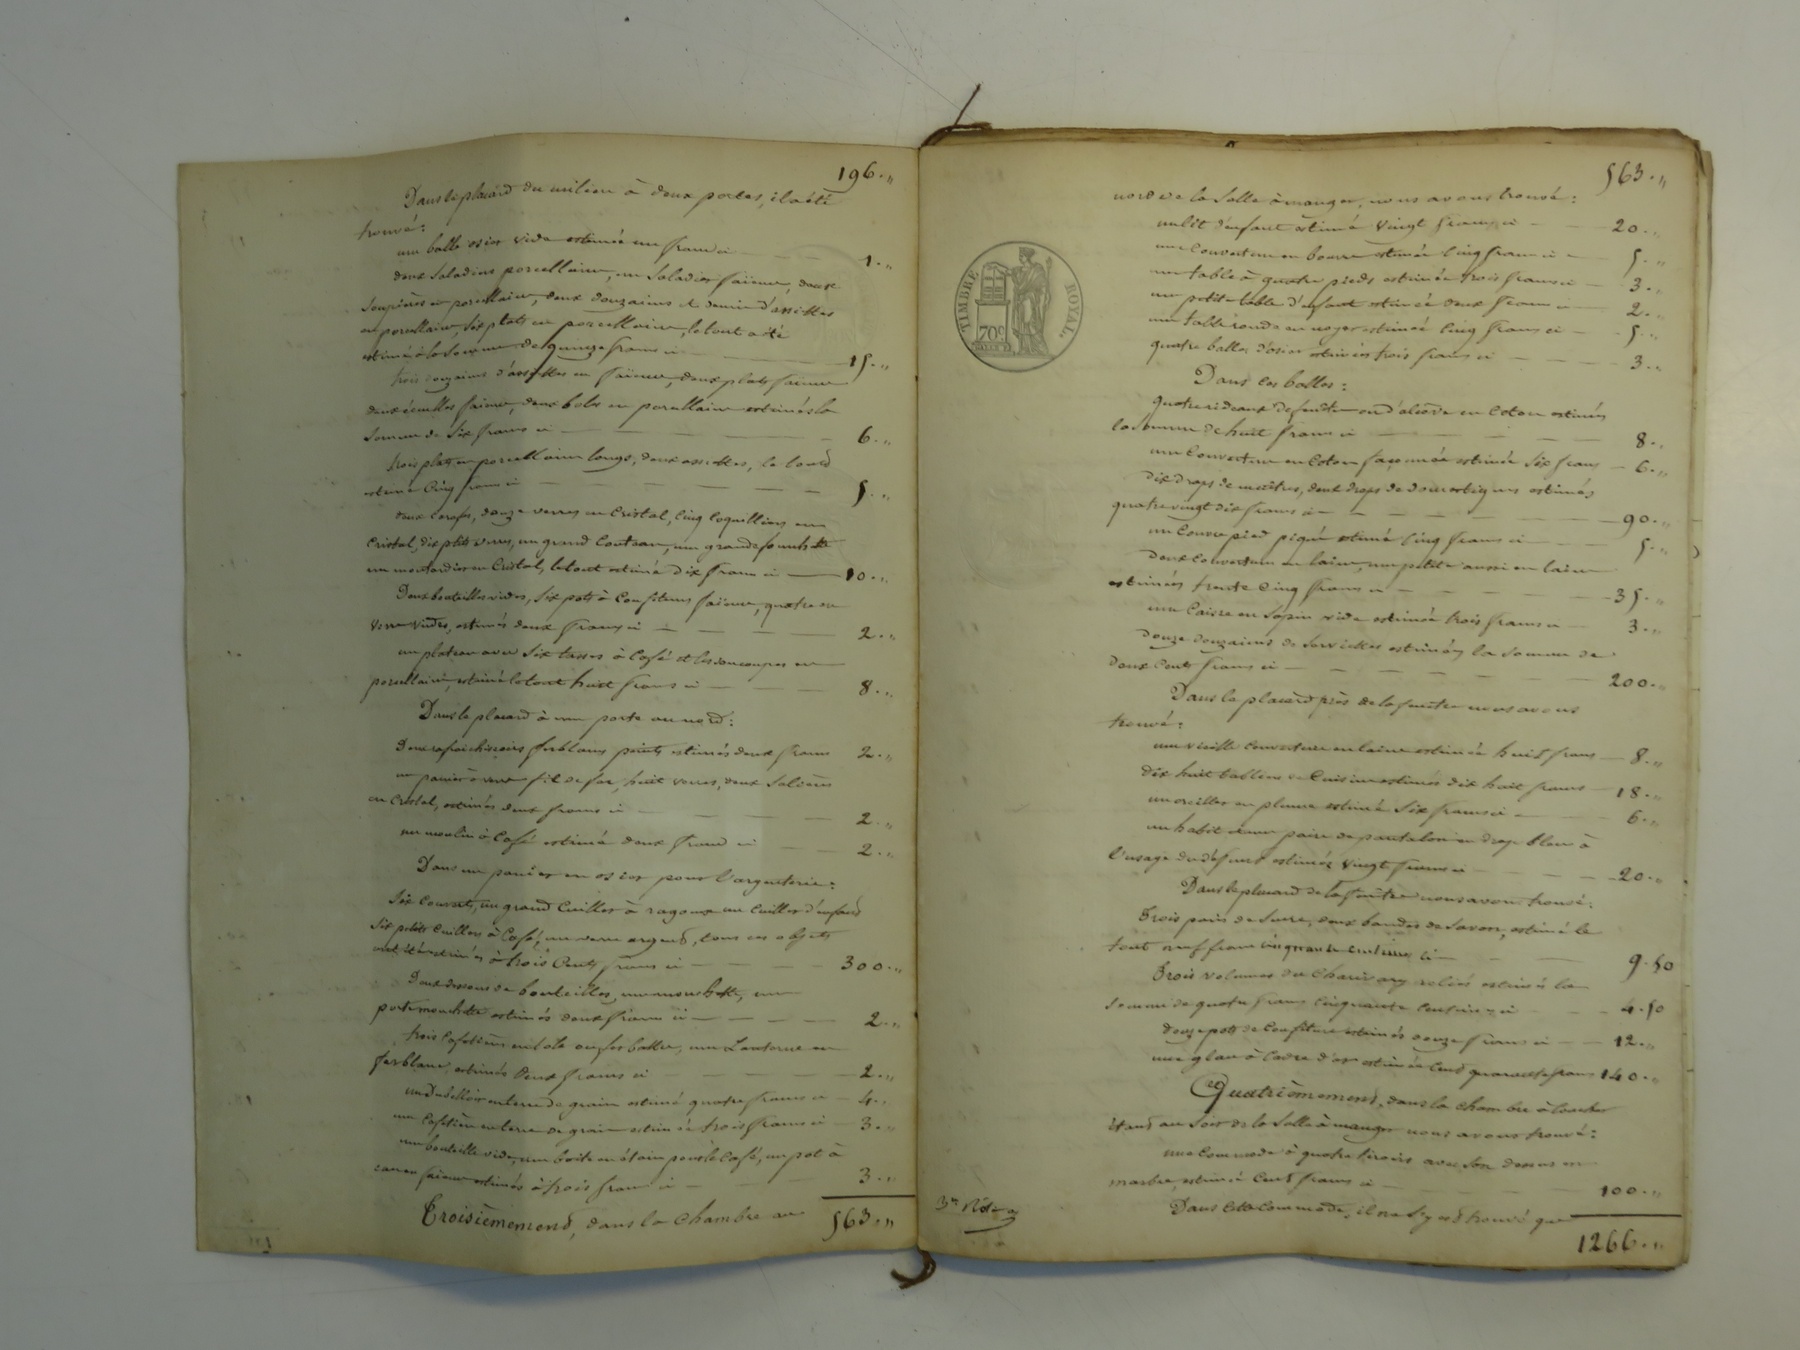 196.,,
Dans le placard du milieu à deux portes, il a été
trouvé:
une balle osier vide estimée un franc ci — 1.,,
deux saladiers porcellaine, un saladier faïence, deux
soupières en porcellaine, deux douzaines et demie d'assiettes
en porcellaine, six plats en porcellaine, le tout a été
estimé à la somme de quinze francs ci — 15.,,
trois douzaines d'assiettes en faïence, deux plats faïence
deux écuelles faïence, deux bols en porcellaine estimés la
somme de six francs ci — 6.,,
trois plats en porcellaine longs, deux assiettes, le tout
estimé cinq francs ci — 5.,,
deux carafes, douze verres en cristal, cinq coquilliers en
cristal, dix ptits verres, un grand couteau, une grande fourchette
un moutardier en cristal, le tout estimé dix francs ci — 10.,,
Deux bouteilles vides, six pots à confitures faïence, quatre en
verre vides, estimés deux francs ci — 2.,,
un plateau avec six tasses à café et les soucoupes en
porcellaine, estimé le tout huit francs ci — 8.,,
Dans le placard à une porte au nord:
Deux rafraichissoirs ferblanc peints estimés deux francs 2.,,
un panier à verre fil de fer, huit verres, deux salières
en cristal, estimés deux francs ci — 2.,,
un moulin à café estimé deux francs ci — 2.,,
Dans un panier en osier pour l'argenterie:
Six couverts, un grand cuiller à ragoux un cuiller d'enfant
six ptits cuillers à café, un verre argent, tous ces objets
ont été estimés à trois cents francs ci — 300.,,
Deux dessous de bouteilles, une mouchette, un
porte mouchette estimés deux francs ci — 2.,,
trois cafetières en tole ou fer battu, une lanterne en
ferblanc, estimés deux francs ci — 2.,,
un en terre de grain estimé quatre francs ci — 4.,,
une cafetière en terre de grain estimée trois francs ci — 3.,,
une bouteille vide, une boite en étain pour le café, un pot à
eau en faïence estimés à trois francs ci — 3.,,
Troisièmement, dans la chambre au 563.,,
563.,,
nord de la salle à manger, nous avons trouvé:
TIMBRE ROYAL.
70c
un lit d'enfant estimé vingt francs ci — 20.,,
une couverture en bourre estimée cinq francs ci — 5.,,
une table à quatre pieds estimée trois francs ci — 3.,,
une petite table d'enfant estimée deux francs ci — 2.,,
une table ronde en noyer estimée cinq francs ci — 5.,,
quatre balles d'osier estimées trois francs ci — 3.,,
Dans ces balles:
quatre rideaux de fenêtre ou d'alcove en coton estimés
la somme de huit francs ci — 8.,,
une couverture en coton façonnée estimée six francs — 6.,,
dix draps de maîtres, deux draps de domestiques estimés
quatre vingt dix francs ci — 90.,,
un couvre pied piqué estimé cinq francs ci — 5.,,
deux couvertures en laine, une petite aussi en laine
estimées trente cinq francs ci — 35.,,
une caisse en sapin vide estimée trois francs ci — 3.,,
douze douzaines de serviettes estimées la somme de
deux cents francs ci — 200.,,
Dans le placard près de la fenêtre nous avons
trouvé:
une vieille couverture en laine estimée huit francs — 8.,,
dix huit tabliers de cuisine estimés dix huit francs — 18.,,
un oreiller en plume estimé six francs ci — 6.,,
un habit et une paire de pantalon en drap bleu à
l'usage du défunt estimés vingt francs ci — 20.,,
Dans le placard de la fenêtre nous avons trouvé:
Trois pains de sucre, deux bandes de savon, estimé le
tout neuf francs cinquante centimes ci — 9.50
Trois volumes du Charivary reliés estimés la
somme de quatre francs cinquante centimes ci — 4.50
douze pots de confiture estimés douze francs ci — 12.,,
une glace à cadre d'or estimée cent quarante francs 140.,,
Quatrièmement, dans la chambre à coucher
étant au soir de la salle à manger nous avons trouvé:
une commode à quatre tiroirs avec son dessus en
marbre, estimée cent francs ci — 100.,,
Dans cette commode, il ne s'y est trouvé que
3e Rôle
1266.,,